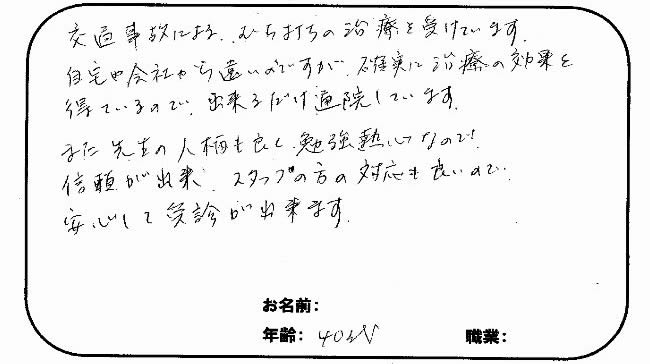 交通事故による、むち打ちの治療を受けています。
自宅や会社から遠いのですが、確実に治療の効果を
得ているので、出来るだけ通院しています。
また先生の人柄も良く、勉強熱心なので、
信頼が出来、スタッフの方の対応も良いので、
安心して受診が出来ます。
お名前：
年齢：40代 職業：